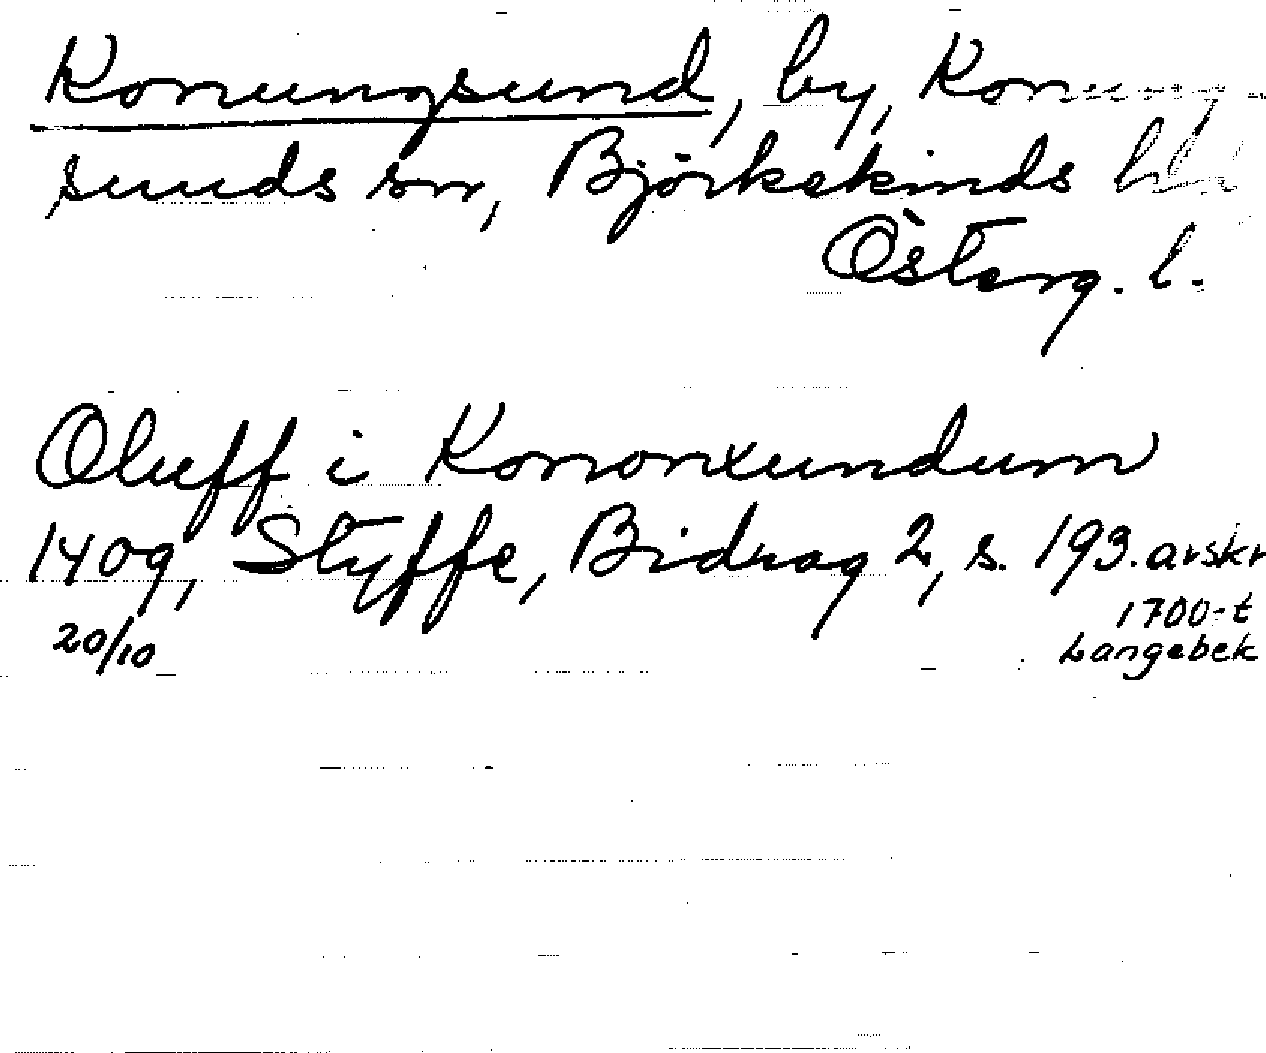 Konungsund, by, Konung-
sunds sn, Björkekinds hd
Österg. l.
Oluff i Kononxundum
1409, Styffe, Bidrag 2, s. 193. avskr
1700-t
20/10
Langebek